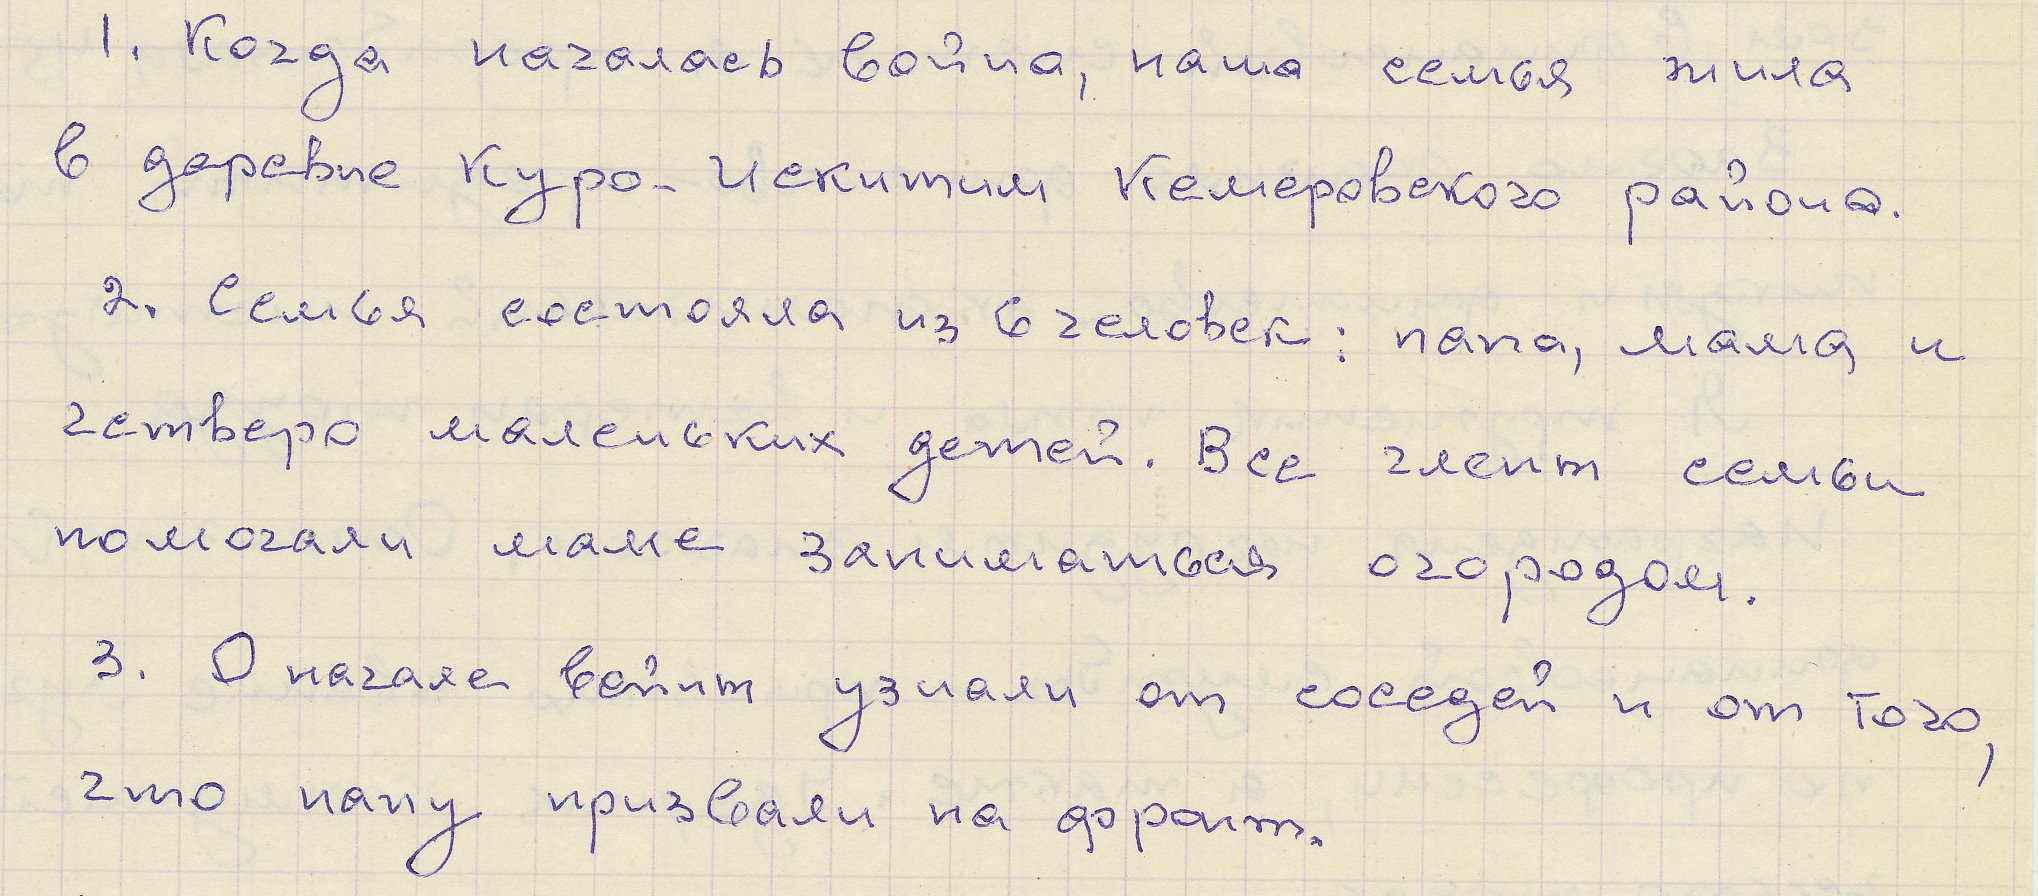 1. Когда началась война, наша семья жила
в деревне Куро-Искитим Кемеровского района.
2. Семья состояла из 6 человек: папа, мама и
четверо маленьких детей. Все члены семьи
помогали маме заниматься огородом.
3. О начале войны узнали от соседей и от того,
что папу призвали на фронт.